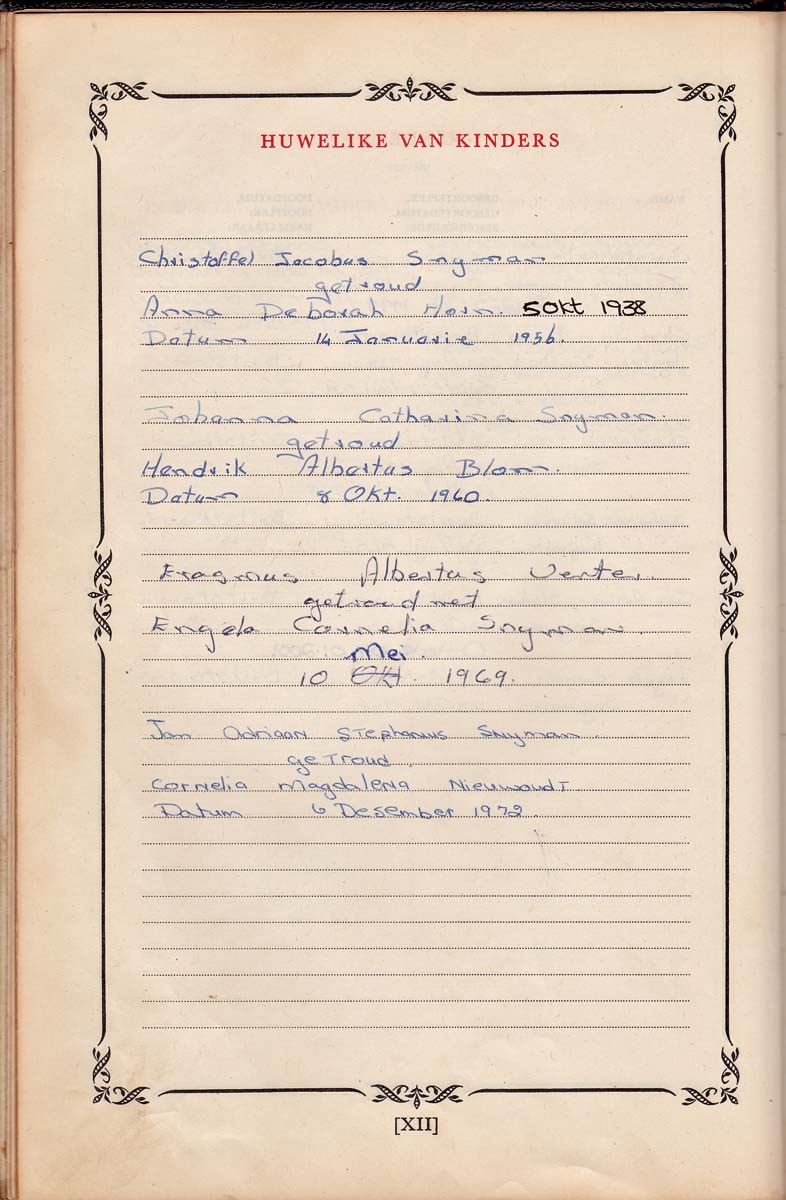 HUWELIKE VAN KINDERS
Christoffel Jacobus Snyman
getroud
Anna Deborah Horn. 5 Okt 1938
Datum 14 Januarie 1956.
Johanna Catharina Snyman.
getroud
Hendrik Albertus Blom.
Datum 8 Okt. 1960.
Erasmus Albertus Venter.
getroud met
Engela Cornelia Snyman.
Mei.
10 Okt. 1969.
Jan Adriaan Stephanus Snyman
getroud.
Cornelia Magdalena Nieuwoudt
Datum 6 Desember 1972.
[XII]